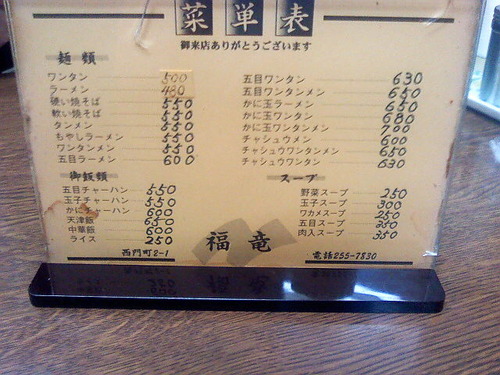 菜単表
御来店ありがとうございます
麺類
ワンタン 500
ラーメン 480
硬い焼そば 550
軟い焼そば 550
タンメン 550
もやしラーメン 550
ワンタンメン 550
五目ラーメン 600
五目ワンタン 630
五目ワンタンメン 650
かに玉ラーメン 650
かに玉ワンタン 680
かに玉ワンタンメン 700
チャシュウメン 600
チャシュウワンタンメン 650
チャシュウワンタン 630
御飯類
五目チャーハン 550
玉子チャーハン 550
かにチャーハン 600
天津飯 650
中華飯 600
ライス 250
スープ
野菜スープ 250
玉子スープ 300
ワカメスープ 250
五目スープ 350
肉入スープ 350
福竜
西門町2-1
電話255-7830